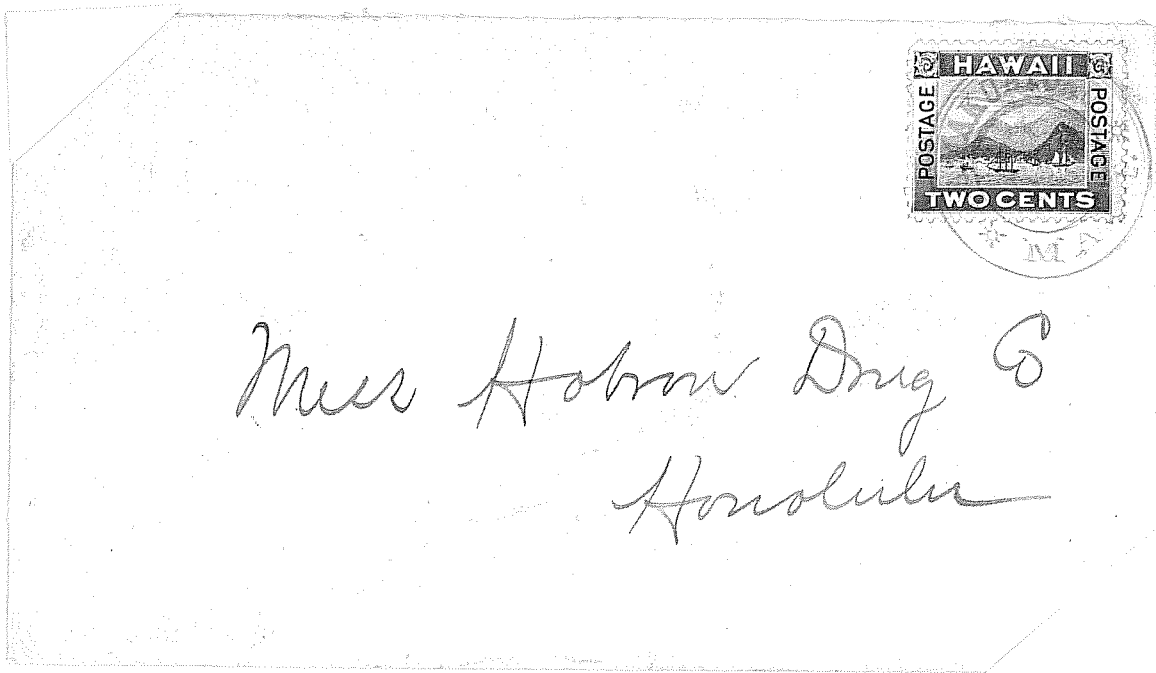 HAWAII
POSTAGE
POSTAGE
TWO CENTS
Mess Hobron Drug Co
Honolulu